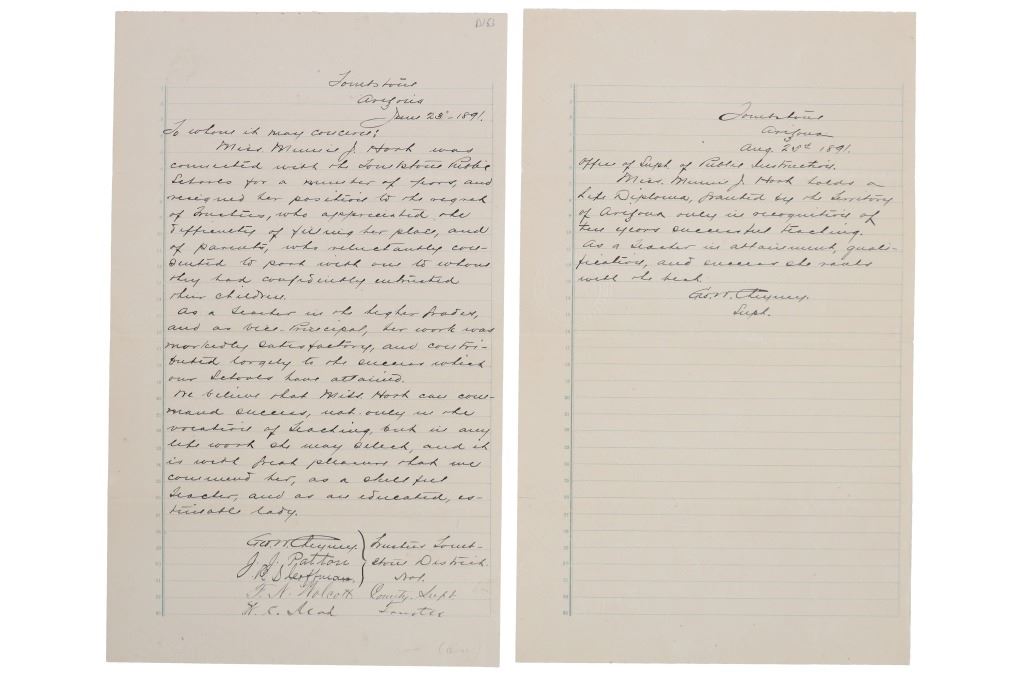 Tombstone
Arizona
June 23d - 1891.
To whom it may concern:
Miss Minnie J. Hook was
connected with the Tombstone Public
Schools for a number of years, and
resigned her position to the regret
of Trustees, who appreciated the
difficulty of filling her place, and
of parents, who reluctantly con-
sented to part with one to whom
they had confidently entrusted
their children.
As a teacher in the higher grades,
and as vice-Principal, her work was
markedly satisfactory, and contri-
buted largely to the success which
our Schools have attained.
We believe that Miss Hook can com-
mand success, not only in the
vocation of Teaching, but in any
life work she may select, and it
is with great pleasure that we
commend her, as a skillful
Teacher, and as an educated, es-
timable lady.
Geo. W. Cheyney.
Trustees Tomb-
J. J. Patton
stone District
No 1.
F. N. Wolcott County Supt
Tombstone
Arizona
Aug. 28th 1891.
Office of Supt. of Public Instruction.
Miss. Minnie J. Hook holds a
Life Diploma, granted by the Territory
of Arizona only in recognition of
ten years successful teaching.
As a teacher in attainment, quali-
fication, and success she ranks
with the best.
Geo. W. Cheyney.
Supt.